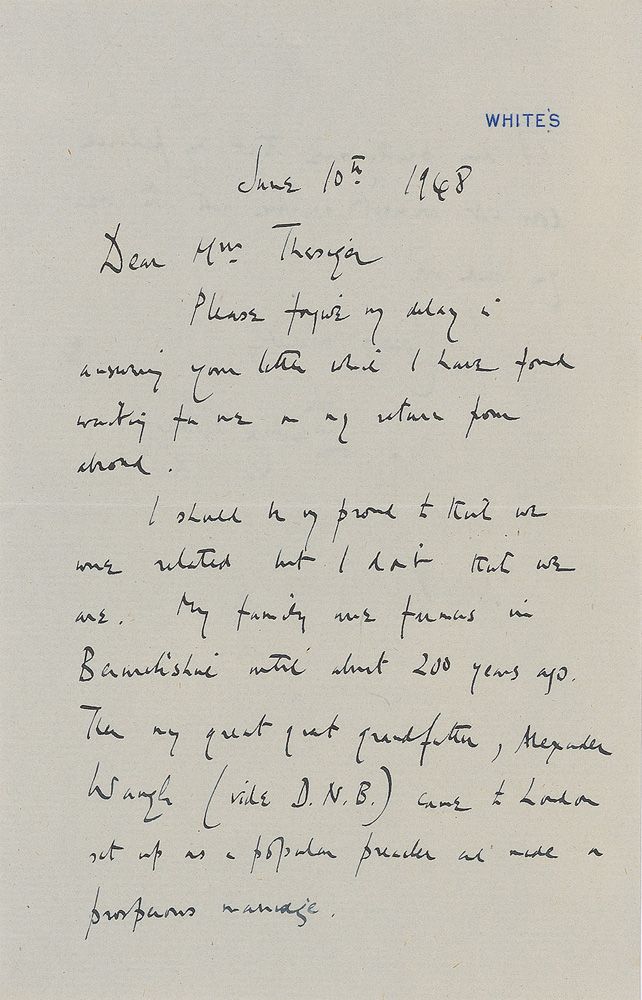 WHITE'S
June 10th 1948
Dear Mrs Thesiger
Please forgive my delay in
answering your letter which I have found
waiting for me on my return from
abroad.
I should be very proud to think we
were related but I don't think that we
are. My family were farmers in
Berwickshire until about 200 years ago.
Then my great great grandfather, Alexander
Waugh (vide D.N.B.) came to London
set up as a popular preacher and made a
prosperous marriage.